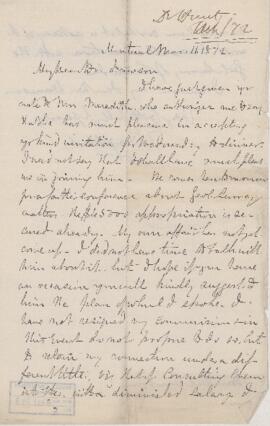 Dr Hunt
/72
Montreal Mar 11 1872
My dear Dr. Dawson
I have just given yr
note to Mr Meredith, who authorizes me to say
that he has much pleasure in accepting
yr kind invitation for Wednesday to dinner.
I need not say that I shall have much pleas
ure in joining him. He comes
for a conference about Geol. Survey
matters. The $15000 appropriation is se
cured already. My own affair has not yet
come up. I did not have time to talk with
him about it, but I hope if you have
an occasion you will kindly suggest to
him the plan of which I spoke. I
have not resigned my commission
this & do not propose to do so, but
to retain my connection under a dif
ferent title, viz that of Consulting Chem
ist with a diminished salary &